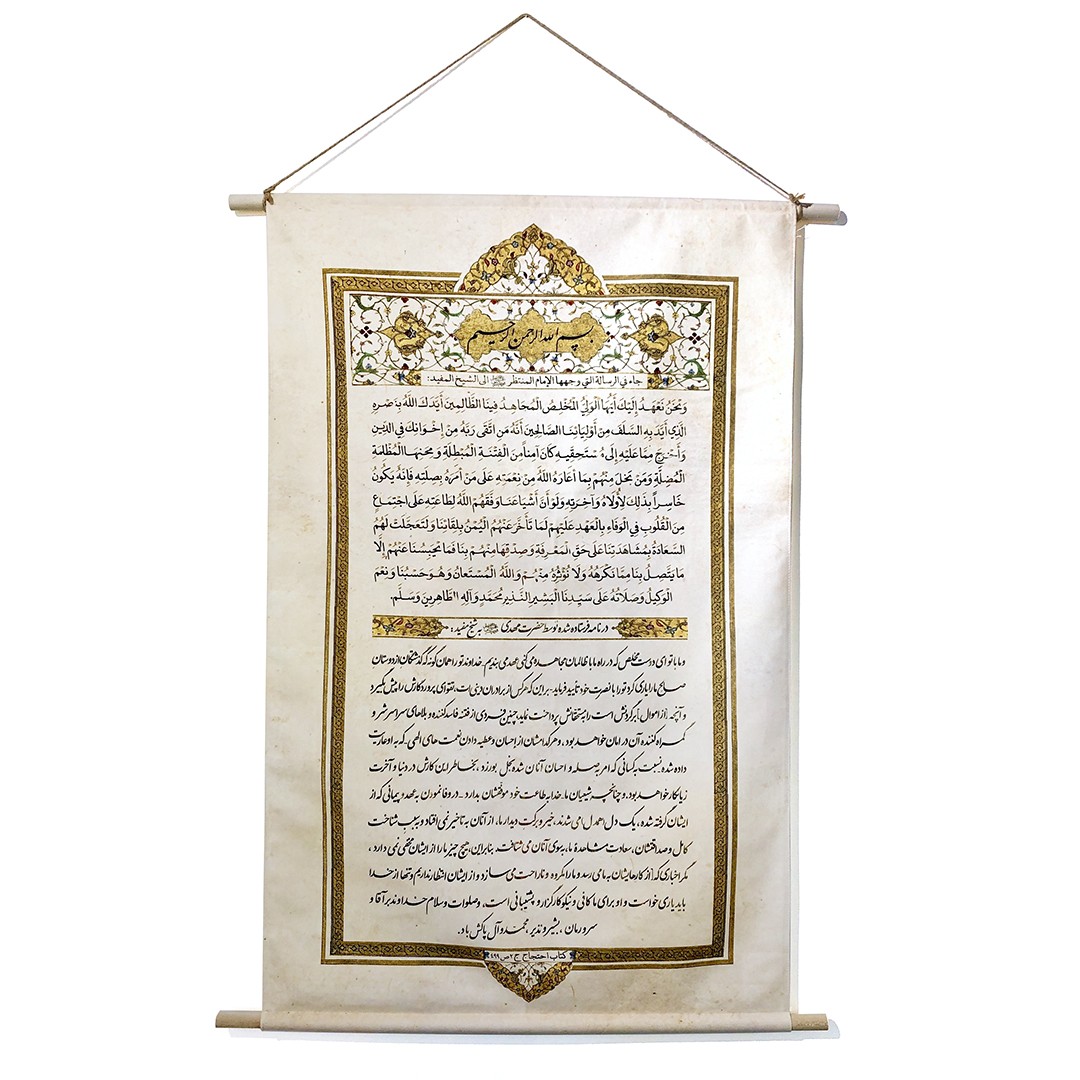 بسم الله الرحمن الرحیم
جاء في الرسالة التي وجهها الإمام المنتظر إلى الشيخ المفيد:
وَنَحْنُ نَعْهَدُ إِلَيْكَ أَيُّهَا الْوَلِيُّ الْمُخْلِصُ الْمُجَاهِدُ فِينَا الظَّالِمِينَ أَيَّدَكَ اللَّهُ بِنَصْرِهِ
الَّذِي أَيَّدَ بِهِ السَّلَفَ مِنْ أَوْلِيَائِنَا الصَّالِحِينَ أَنَّهُ مَنِ اتَّقَى رَبَّهُ مِنْ إِخْوَانِكَ فِي الدِّينِ
وَأَخْرَجَ مِمَّا عَلَيْهِ إِلَى مُسْتَحِقِّيهِ كَانَ آمِناً مِنَ الْفِتْنَةِ الْمُبْطِلَةِ وَمِحَنِهَا الْمُظْلِمَةِ
الْمُضِلَّةِ وَمَنْ بَخِلَ مِنْهُمْ بِمَا أَعَارَهُ اللَّهُ مِنْ نِعْمَتِهِ عَلَى مَنْ أَمَرَهُ بِصِلَتِهِ فَإِنَّهُ يَكُونُ
خَاسِراً بِذَلِكَ لِأُولَاهُ وَآخِرَتِهِ وَلَوْ أَنَّ أَشْيَاعَنَا وَفَّقَهُمُ اللَّهُ لِطَاعَتِهِ عَلَى اجْتِمَاعٍ
مِنَ الْقُلُوبِ فِي الْوَفَاءِ بِالْعَهْدِ عَلَيْهِمْ لَمَا تَأَخَّرَ عَنْهُمُ الْيُمْنُ بِلِقَائِنَا وَلَتَعَجَّلَتْ لَهُمُ
السَّعَادَةُ بِمُشَاهَدَتِنَا عَلَى حَقِّ الْمَعْرِفَةِ وَصِدْقِهَا مِنْهُمْ بِنَا فَمَا يَحْبِسُنَا عَنْهُمْ إِلَّا
مَا يَتَّصِلُ بِنَا مِمَّا نَكْرَهُهُ وَلَا نُؤْثِرُهُ مِنْهُمْ وَاللَّهُ الْمُسْتَعَانُ وَهُوَ حَسْبُنَا وَنِعْمَ
الْوَكِيلُ وَصَلَاتُهُ عَلَى سَيِّدِنَا الْبَشِيرِ النَّذِيرِ مُحَمَّدٍ وَآلِهِ الطَّاهِرِينَ وَسَلَّمَ.
در نامه فرستاده شده توسط حضرت مهدی به شیخ مفید:
و ما با تو ای دوست مخلص که در راه ما با ظالمان مجاهده می کنی عهد می بندیم. خداوند تو را همان گونه که گذشتگان از دوستان
صالح ما را یاری کرد تو را با نصرت خود تأیید فرماید. بر این که هر کس از برادران دینی ات، تقوای پروردگارش را پیش بگیرد
و آنچه [از اموال] بر گردنش است را به مستحقانش پرداخت نماید، چنین فردی از فتنه فاسد کننده و بلاهای سراسر شر و
گمراه کننده آن در امان خواهد بود، و هر کدامشان از احسان و عطیه دادن نعمت های الهی که به او عاریت
داده شده نسبت به کسانی که امر به صله و احسان آنان شده بخل بورزد، بخاطر این کارش در دنیا و آخرت
زیانکار خواهد بود. و چنانچه شیعیان ما خدا به طاعت خود موفقشان بدارد در وفا نمودن به عهد و پیمانی که از
ایشان گرفته شده، یک دل [همدل] می شدند، خیر و برکت دیدار ما، از آنان به تاخیر نمی افتاد و به سبب شناخت
کامل و صداقتشان، سعادت مشاهدۀ ما، بسوی آنان می شتافت. بنابراین، هیچ چیز ما را از ایشان مخفی نمی دارد،
مگر اخباری که [از کارهایشان به ما] می رسد و ما را مکروه و ناراحت می سازد و از ایشان انتظار نداریم و تنها از خدا
باید یاری خواست و او برای ما کافی و نیکو کارگزار و پشتیبانی است. و صلوات و سلام خداوند بر آقا و
سرورمان، بشیر و نذیر، محمد و آل پاکش باد.
کتاب احتجاج ج۲ ص۴۹۹